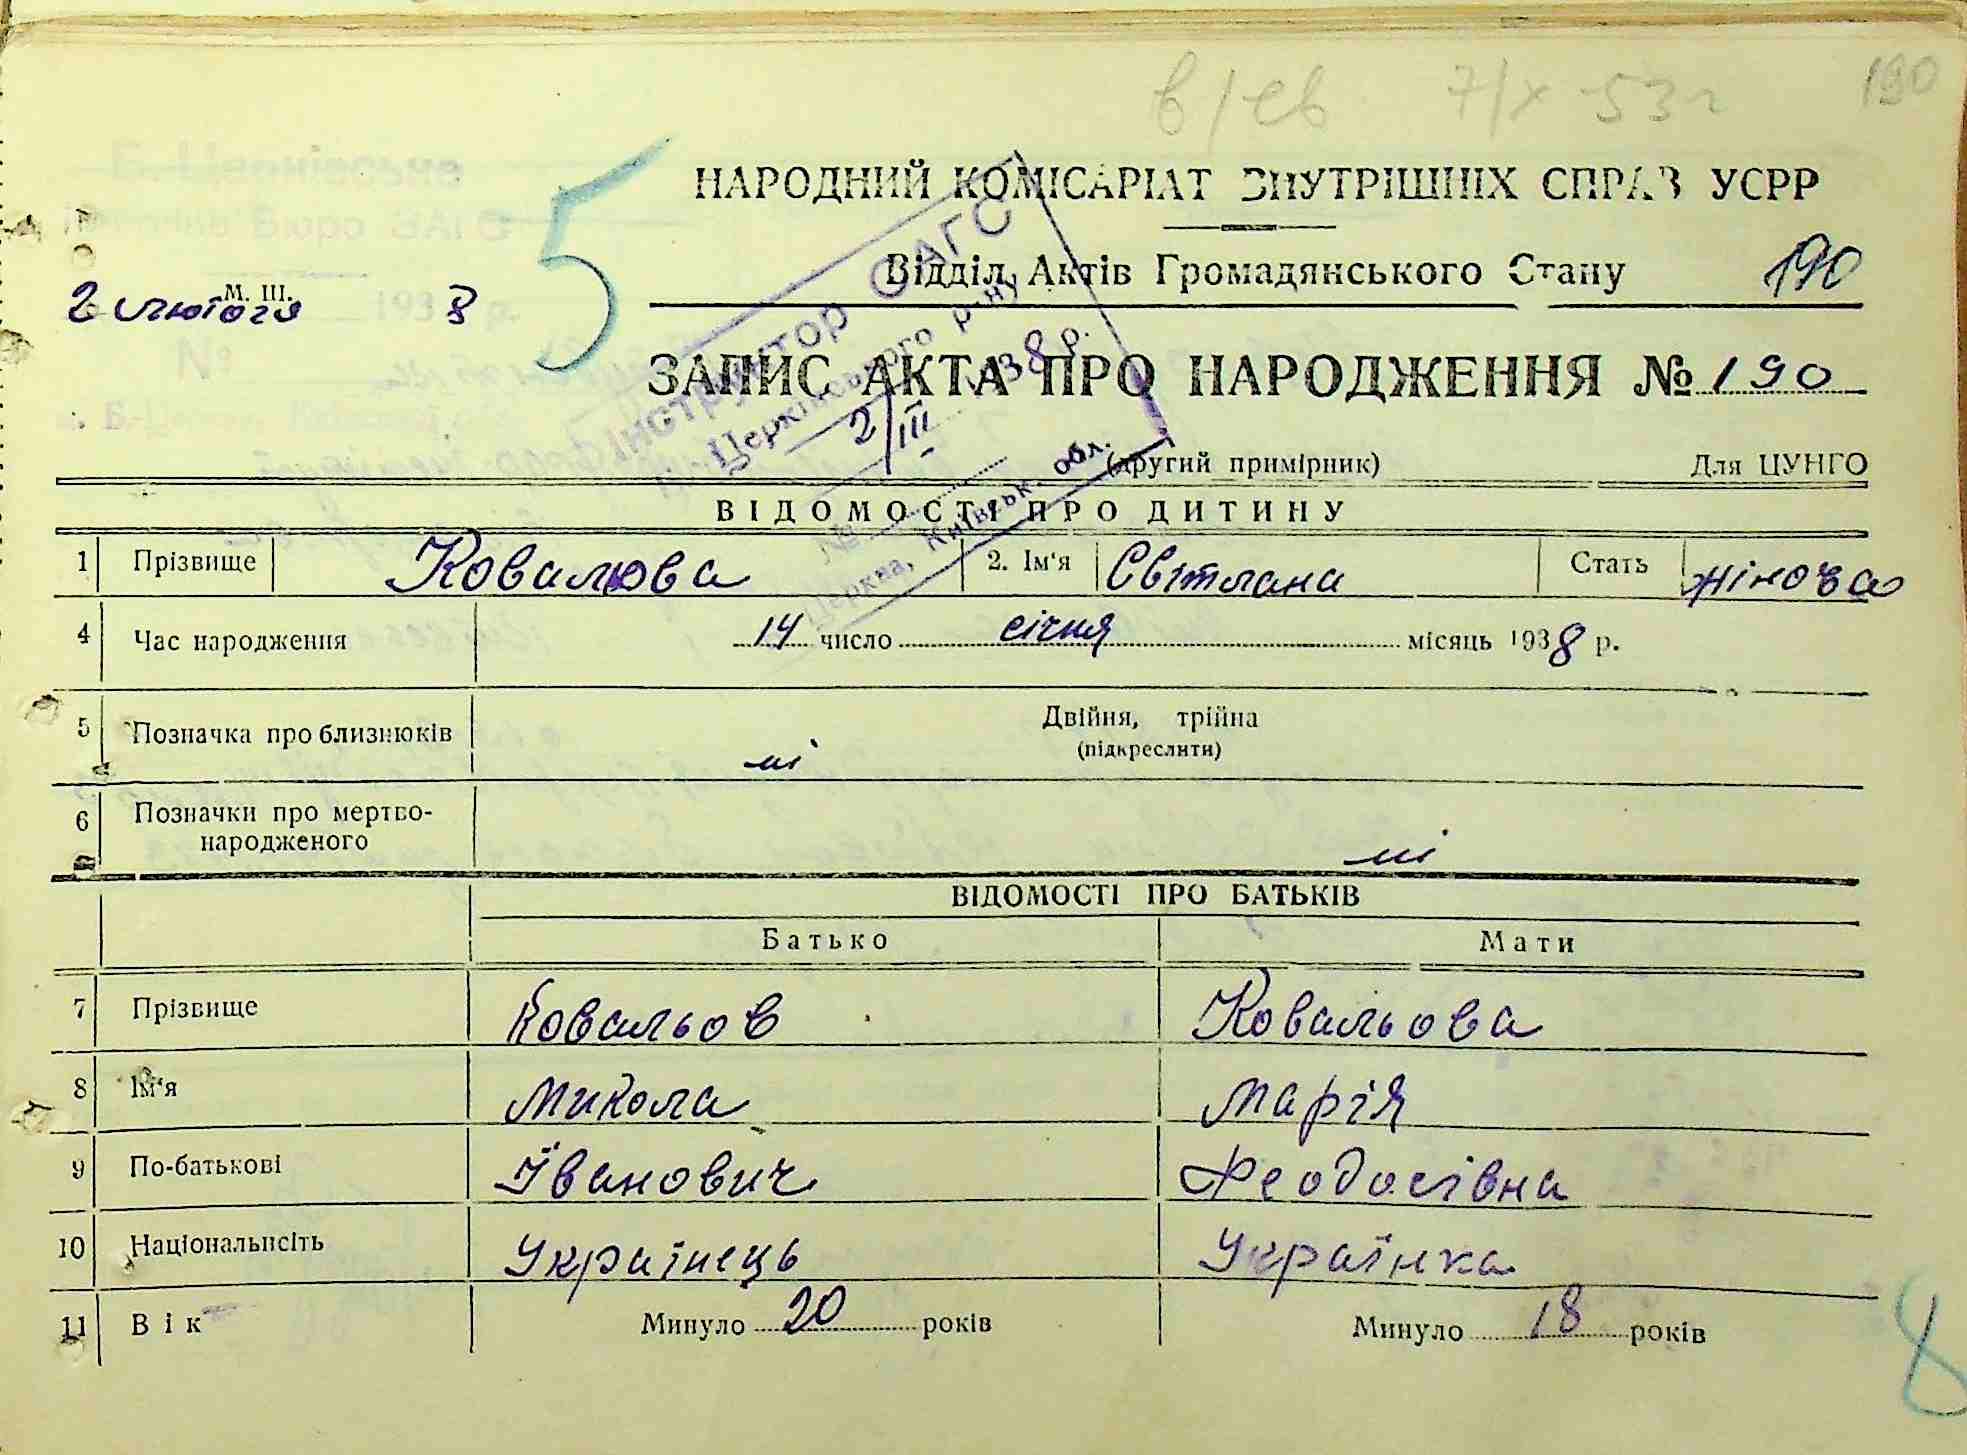 в/св 7/X 53 г 190
Б.-Церківське
Бюро ЗАГС
НАРОДНИЙ КОМІСАРІАТ ВНУТРІШНІХ СПРАВ УСРР
Відділ Актів Громадянського Стану 190
М. Ш.
2 лютого 1938 р.
№
Інструктор ЗАГС
Церківського р-ну
2/III 1938 р.
№
Церква, Київськ. обл.
ЗАПИС АКТА ПРО НАРОДЖЕННЯ № 190
(другий примірник) Для ЦУНГО
5
ВІДОМОСТІ ПРО ДИТИНУ
1 Прізвище Ковальова 2. Ім'я Світлана Стать жіноча
4 Час народження 14 число січня місяць 1938 р.
5 Позначка про близнюків Двійня, трійна
(підкреслити)
ні
6 Позначки про мертво-
народженого ні
ВІДОМОСТІ ПРО БАТЬКІВ
Батько Мати
7 Прізвище Ковальов Ковальова
8 Ім'я Микола Марія
9 По-батькові Іванович Феодосівна
10 Національність Українець Українка
11 Вік Минуло 20 років Минуло 18 років
8